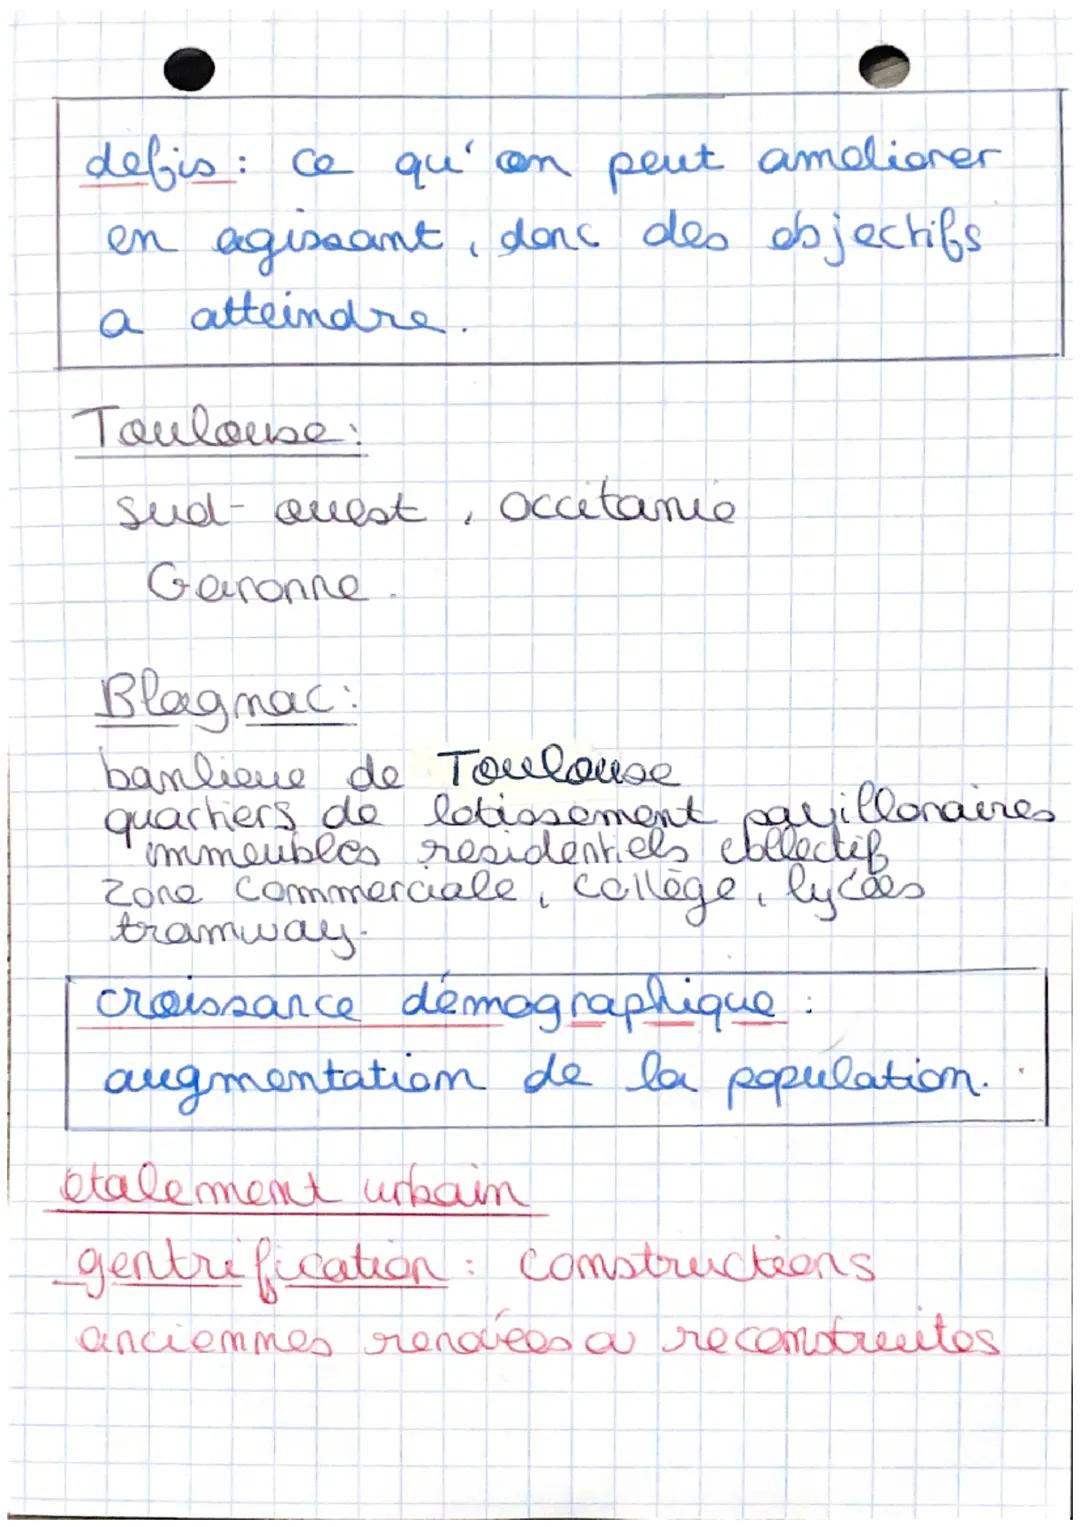 defis : ce qu'on peut ameliorer
en agissant, donc des objectifs
a atteindre.
Toulouse :
sud-ouest, occitanie
Garonne.
Blagnac :
banlieue de Toulouse
quartiers de lotissement pavillonaires
immeubles residentiels collectif
zone commerciale, collège, lycées
tramway.
croissance démographique :
augmentation de la population.
etalement urbain
gentrification : constructions
anciennes a reconstruites